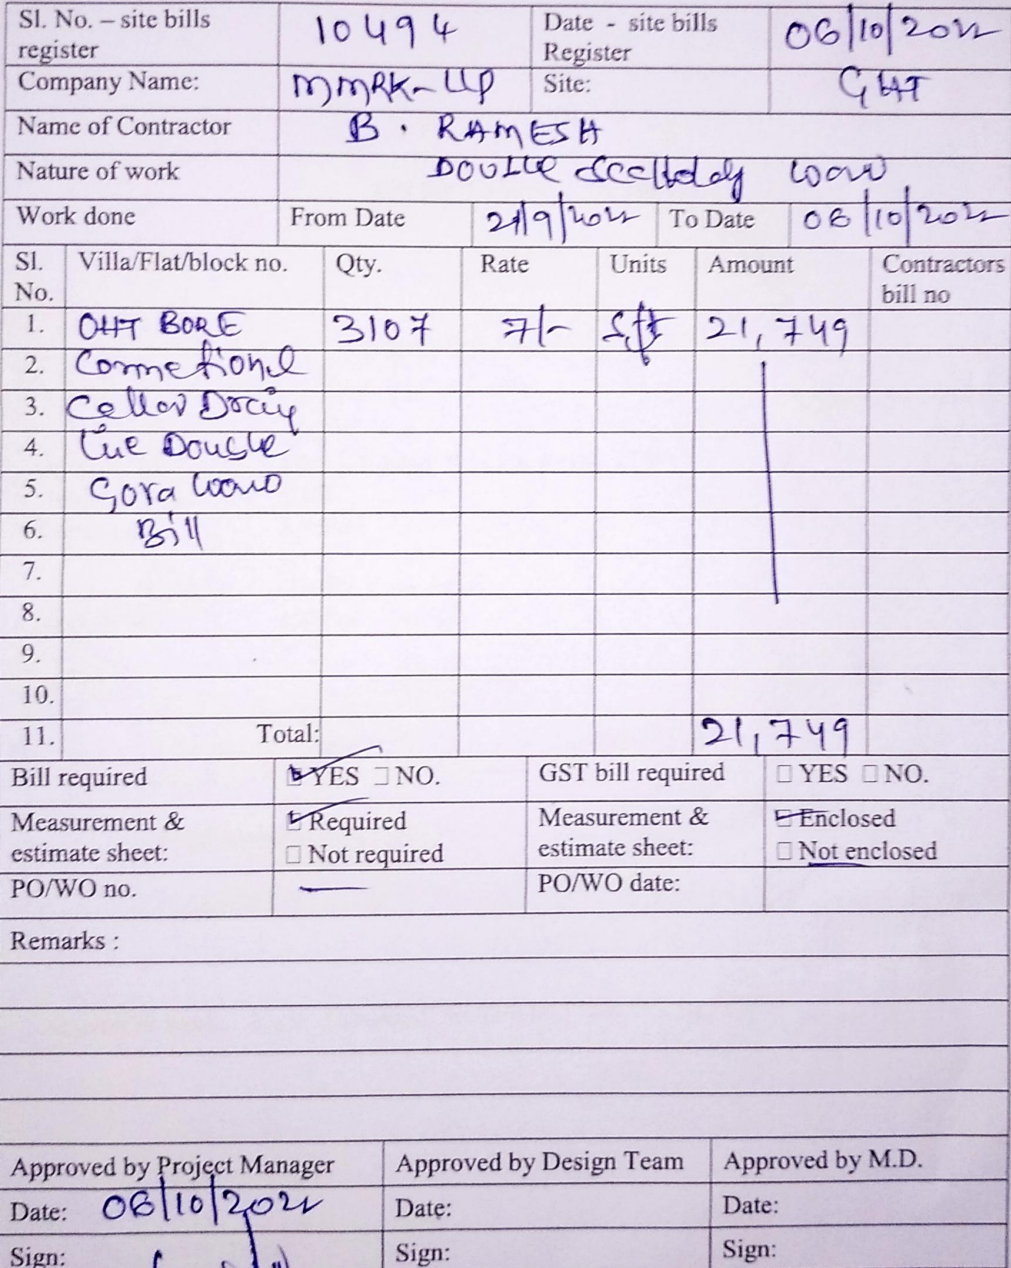 Sl. No. – site bills register 10494 Date - site bills Register 06/10/2022
Company Name: MMRK-LLP Site: GHT
Name of Contractor B. RAMESH
Nature of work DOUBLE
Work done From Date 21/9/2022 To Date 06/10/2022
Sl. No. Villa/Flat/block no. Qty. Rate Units Amount Contractors bill no
1. OHT BORE 3107 7/- Sft 21,749
2.
3. Cellar
4. Line Double
5. Gova
6. Bill
7.
8.
9.
10.
11. Total: 21,749
Bill required YES NO. GST bill required YES NO.
Measurement & estimate sheet: Required Not required Measurement & estimate sheet: Enclosed Not enclosed
PO/WO no. — PO/WO date:
Remarks :
Approved by Project Manager Approved by Design Team Approved by M.D.
Date: 06/10/2022 Date: Date:
Sign: Sign: Sign: